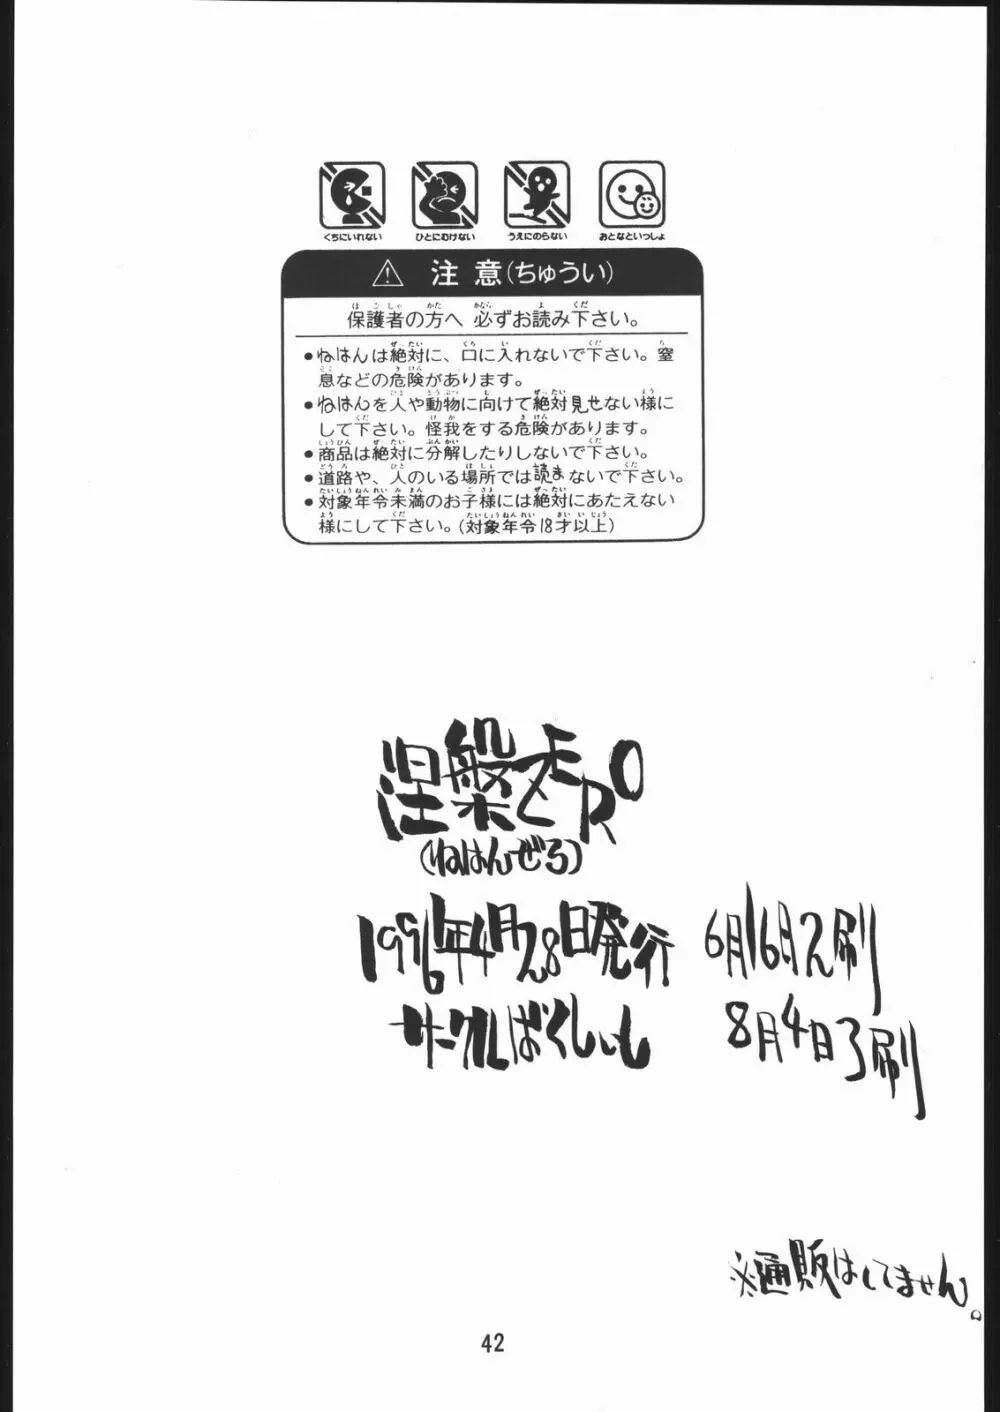 くちにいれない ひとにむけない うえにのらない おとなといっしょ
注意(ちゅうい)
保護者の方へ 必ずお読み下さい。
●ねはんは絶対に、口に入れないで下さい。窒
息などの危険があります。
●ねはんを人や動物に向けて絶対見せない様に
して下さい。怪我をする危険があります。
●商品は絶対に分解したりしないで下さい。
●道路や、人のいる場所では読まないで下さい。
●対象年令未満のお子様には絶対にあたえない
様にして下さい。(対象年令18才以上)
涅槃ZERO
(ねはんぜろ)
1996年4月28日発行
サークルばくしいも
6月16日2刷
8月4日3刷
※通販はしてません。
42